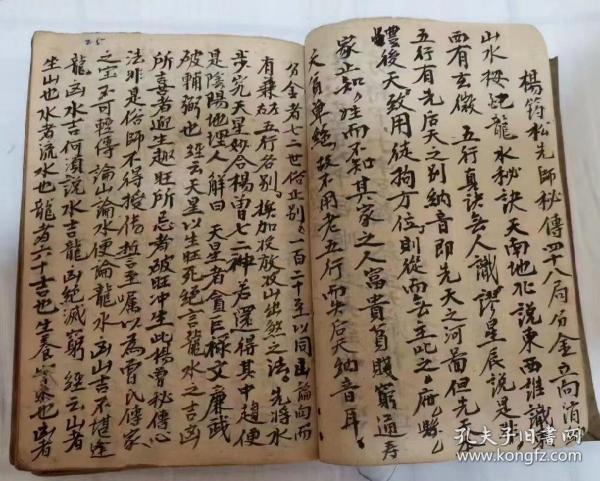 楊筠松先師秘傳四十八局分金立向消
山水按蛇龍水秘訣天南地北說東西誰識
西有玄微 五行真訣無人識謬星辰說是
五行有先后天之別納音即先天之河圖但先天
體後天致用徒拘方位則從而無主此之
家止知 往而不知其家之人富貴貧賤窮通壽
夭 故不用老五行而失后天納音耳
25
分金者七二世俗止别一百二十至以同 論向而
有兼 五行各别 挨加投放放山出煞之法 先將水
步究天星妙合楊曾七二神若還得其中趣便
是陰陽地理人解曰 天星者貪巨祿文廉武
破輔弼也 經云天星以生旺死絕言龍水之吉凶
所喜者迎生趣旺所忌者破旺冲生此楊曾秘傳心
法非是俗師不得授 至囑以為曾氏傳家
之宝不可輕傳論山論水便論龍水凶山吉不堪
龍凶水吉何須說水吉龍凶絕滅窮 經云山者
坐山也水者流水也龍者六十 也生養 也凶者
孔夫子旧書網
www.kongfz.com